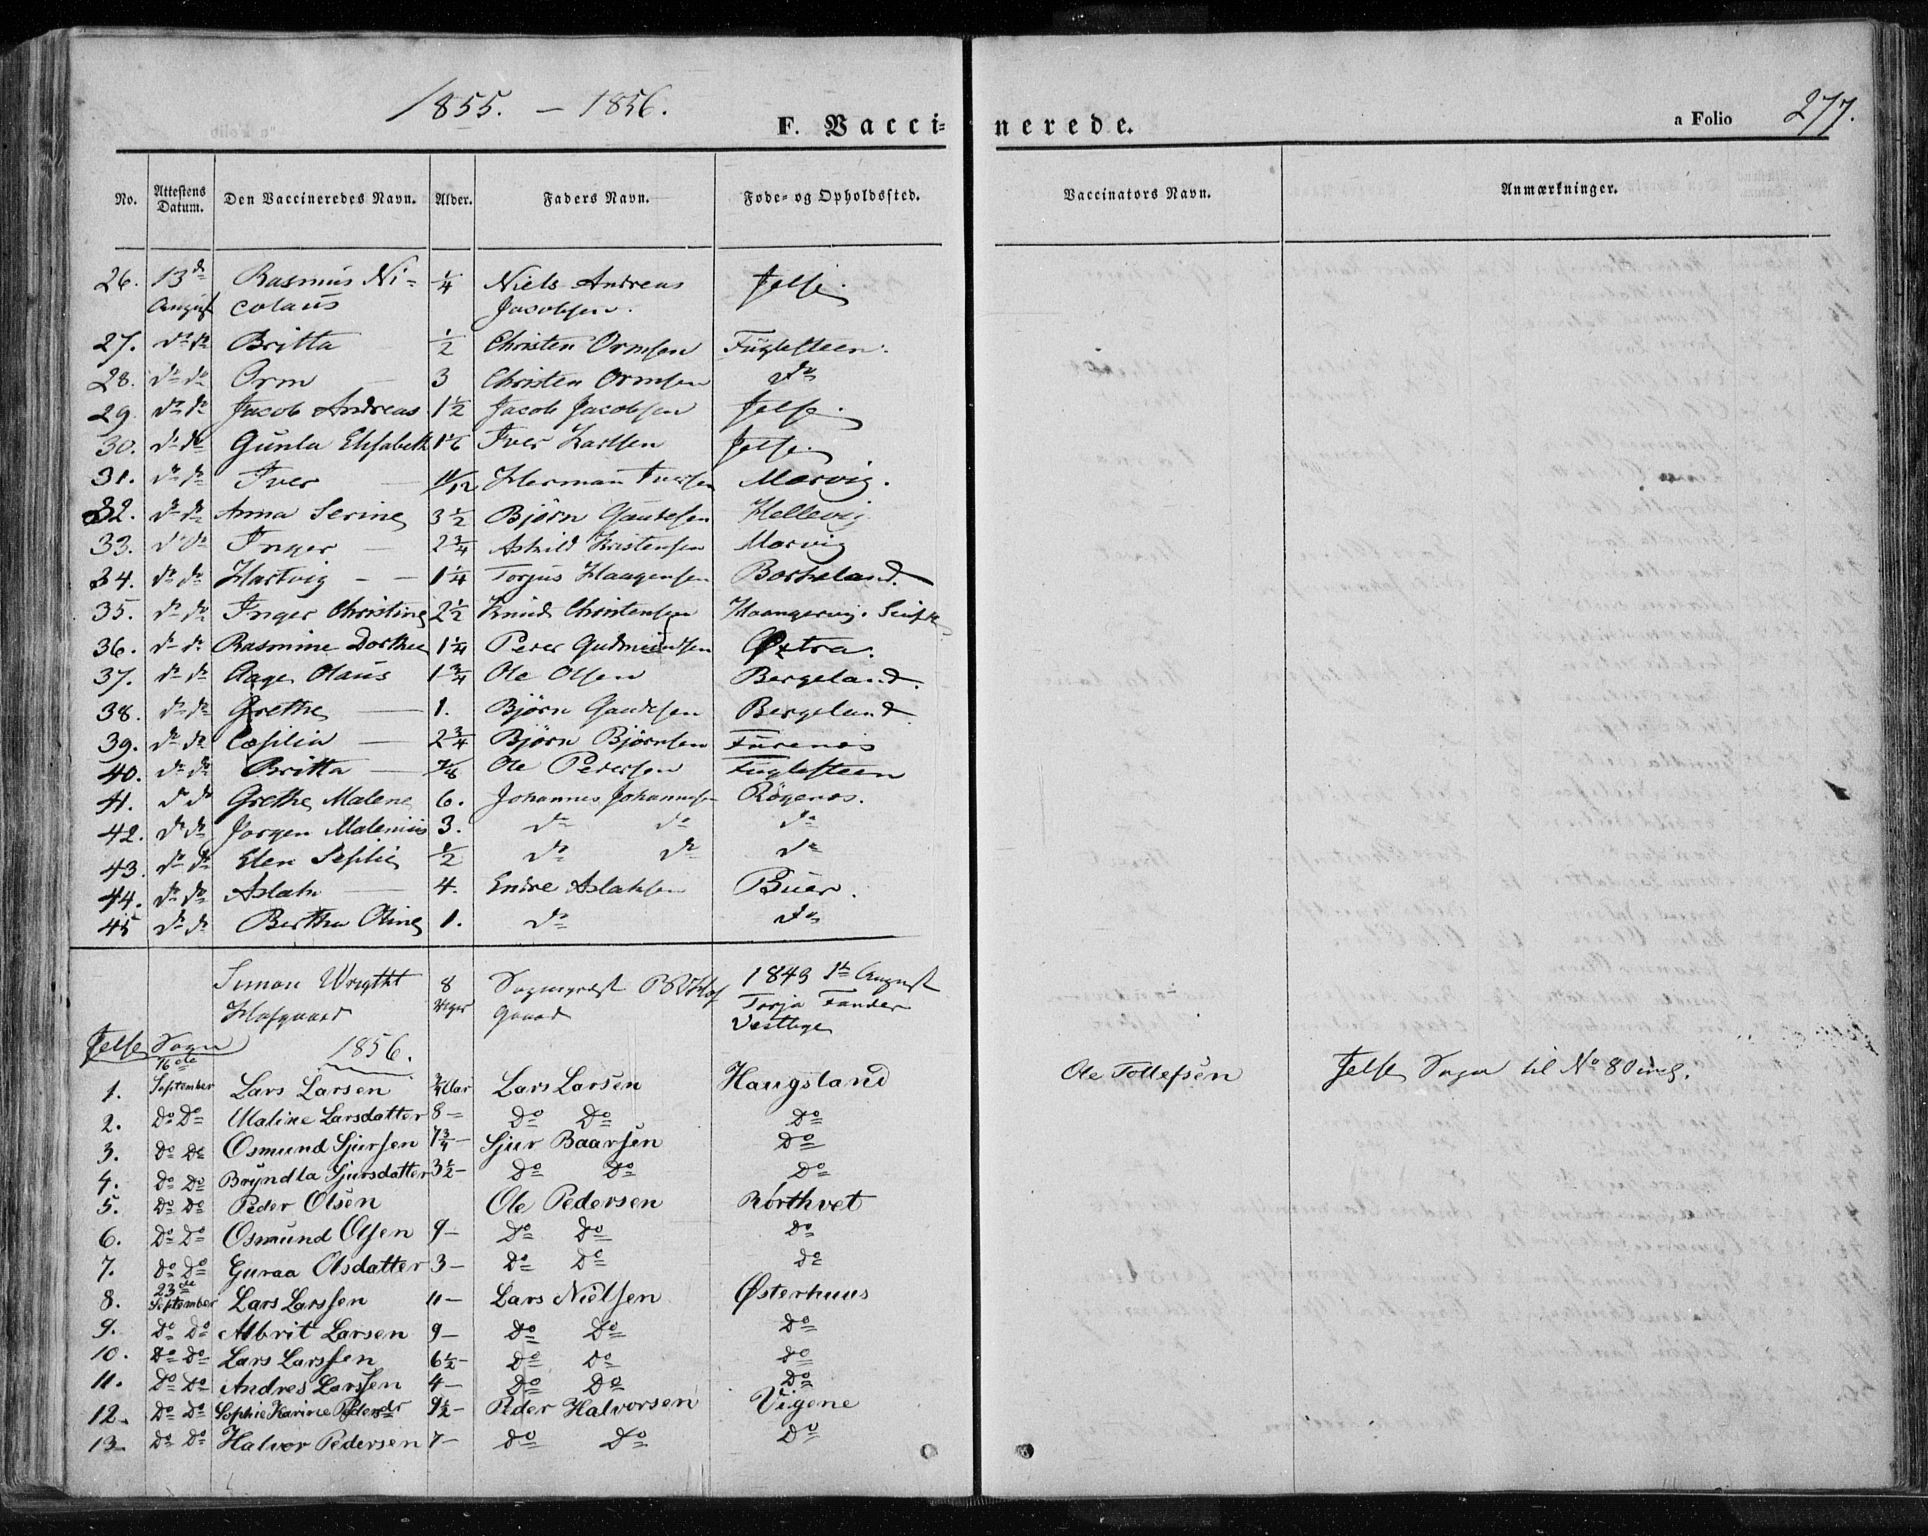 1855. – 1856.
F. Vaccinerede.
a Folio 277.
No. Attestens Datum. Den Vaccineredes Navn. Alder. Faders Navn. Føde- og Opholdssted. Vaccinators Navn. Anmærkninger.
26. 13de Rasmus Ni- 1/4 Niels Andreas Jelse.
August colaus Jacobsen.
27. do do Britta 1/2 Christen Ormsen Fuglesteen.
28. do do Orm 3 Christen Ormsen do
29. do do Jacob Andreas 1 1/2 Jacob Jacobsen Jelse.
30. do do Gunla Elisabeth Iver Larsen Jelse.
31. do do Iver — 11/12 Herman Iversen Marvig.
32. do do Anna Serine 3 1/2 Bjørn Gautesen Hellevig
33. do do Inger — 2 3/4 Askild Kristensen Marvig
34. do do Hartvig — — 1 1/4 Torjus Haagensen Barkeland.
35. do do Inger Christine 2 1/2 Knud Christensen Haangervig.
36. do do Rasmine Dorthea 1 1/4 Peder Gudmundsen Østraa.
37. do do Aage Olaus 1 3/4 Ole Olsen Bergeland.
38. do do Grethe — 1. Bjørn Gautesen Bergeland
39. do do Cesilia — 2 3/4 Bjørn Bjørnsen Furenæs
40. do do Britta — 7/8 Ole Pedersen Fuglesteen
41. do do Grethe Malene 6. Johannes Johannesen Røgenæs.
42. do do Jørgen Malenius 3. do do do
43. do do Elen Sesilie 1/2 do do do
44. do do Aslak — 4. Endre Aslaksen Buer.
45 do do Bertha Oline 1. do do
Simon Wrigtht 8 Sogneprest 1843 1te August
Hofgaard Uger gaard Torja Fander
Vestlige
Jelse Sogn 1856.
16de
1. September Lars Larsen 3/4 Aar Lars Larsen Haugsland Ole Tollefsen Jelse Sogn til No 80 incl.
2. Do Do Maline Larsdatter 8– Do Do Do
3. Do Do Osmund Sjursen 7 3/4 – Sjur Baarsen Do
4. Do Do Bryndla Sjursdatter 3 1/2 – Do Do Do
5. Do Do Peder Olsen Ole Pedersen Rørthvet
6. Do Do Osmund Olsen 9– Do Do Do
7. Do Do Guraa Olsdatter 3– Do Do do
23de
8. September Lars Larssen 11– Lars Nielsen Østerhuus
9. Do Do Albrit Larsen 9– Do Do Do
10. Do Do Lars Larssen 6 1/2 – Do Do Do
11. Do Do Andres Larssen 4– Do Do Do
12. Do Do Sophie Karine Pedersdr 9 1/2 – Peder Halvorsen Vigene
13. Do Do Halvor Pedersen 7– Do Do Do